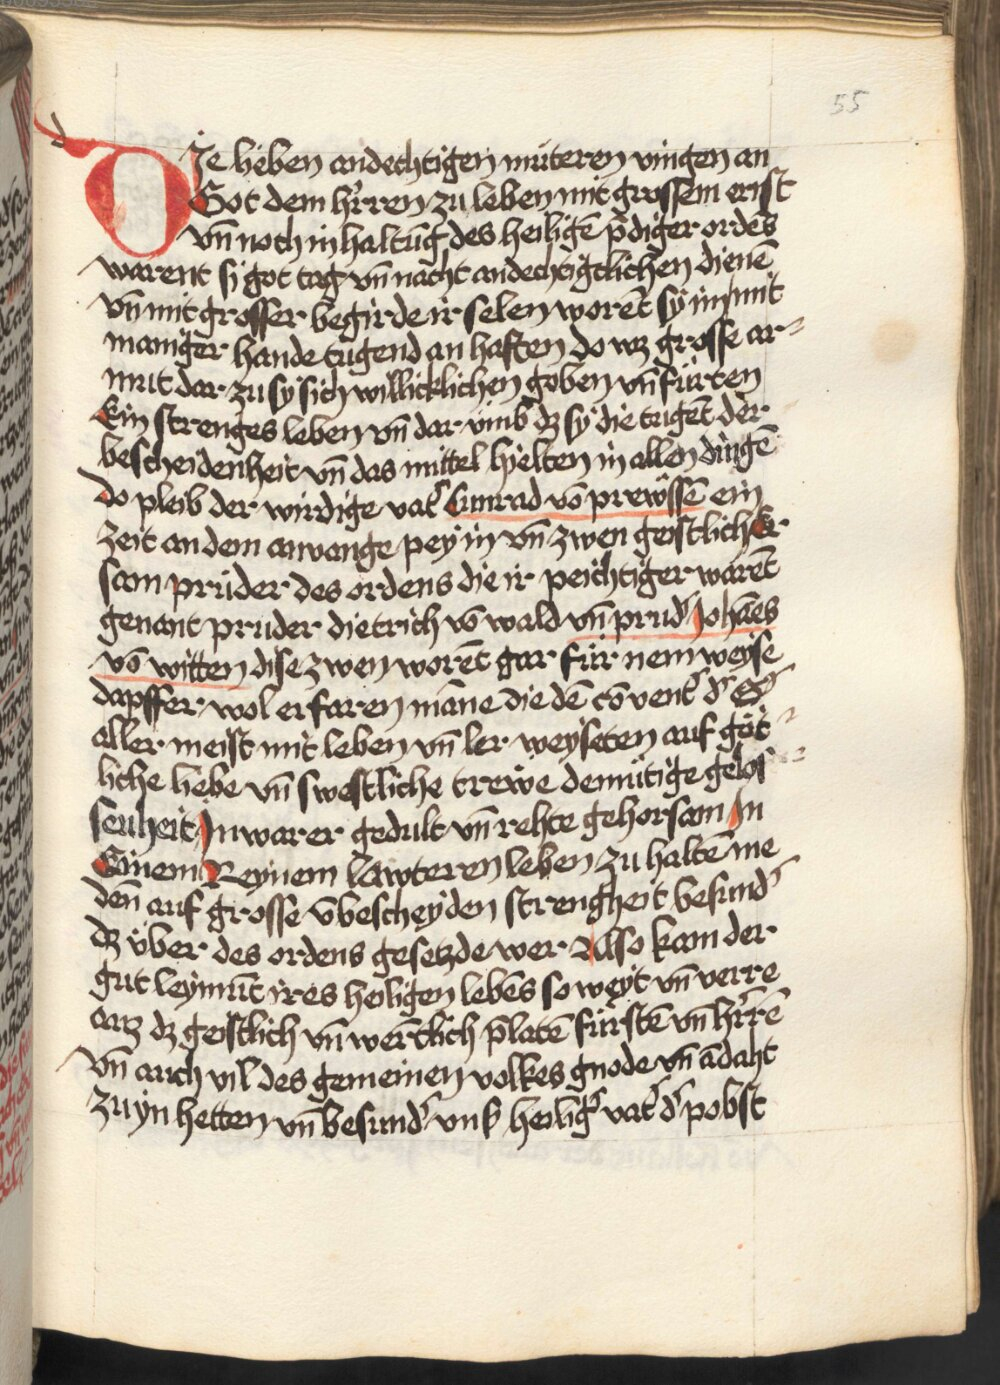 55
DJe lieben andechtigen müteren vingen an
Got dem hr̄ren zu leben mit grossem ernst
vn̄ noch inhaltūg des heiligē p̄diger ordēs
warent si got tag vn̄ nacht andechtigclichen dienē
vn̄ mit grosser begirde ir selen worēt sy im mit
maniger hande tugend an haften do wz grosse ar⸗
mut dar zu sy sich willicklichen goben vn̄ fürten
Ein strenges leben vn̄ dar vmb dz sy die tugēt der
bescheidenheit vn̄ das mittel hielten in allen dingē
Do pleib der wirdige vat̾ Cunrad vō prewssē ein
zeit an dem anvange pey in vn̄ zwen geistlich Er
sam prüder des ordens die ir peichtiger warēt
genant pruder dietrich vō wald vn̄ prud̾ Johāēs
vō witten dise zwen worēt gar für nem weyse
dapffer wol erfaren māne die dē cōvent d̾
aller meist mit leben vn̄ ler weyseten auf göt⸗
liche liebe vn̄ swestliche trewe demütige gelos⸗
senheit Jn warer gedult vn̄ rehte gehorsam Jn
Einem Reynem lawteren leben zu haltē me
den̄ auf grosse vbescheyden strengheit besund̾
dz über des ordens gesetzde wer Also kam der
gut leymūt ires heiligen lebēs so weyt vn̄ verre
auz dz geistlich vn̄ wertlich p̄latē fürstē vn̄ hr̄rē
vn̄ auch vil des gemeinen volkes gnode vn̄ ādaht
zu yn hetten vn̄ besund̾ vnß heilig̾ vat̾ d̾ pobst